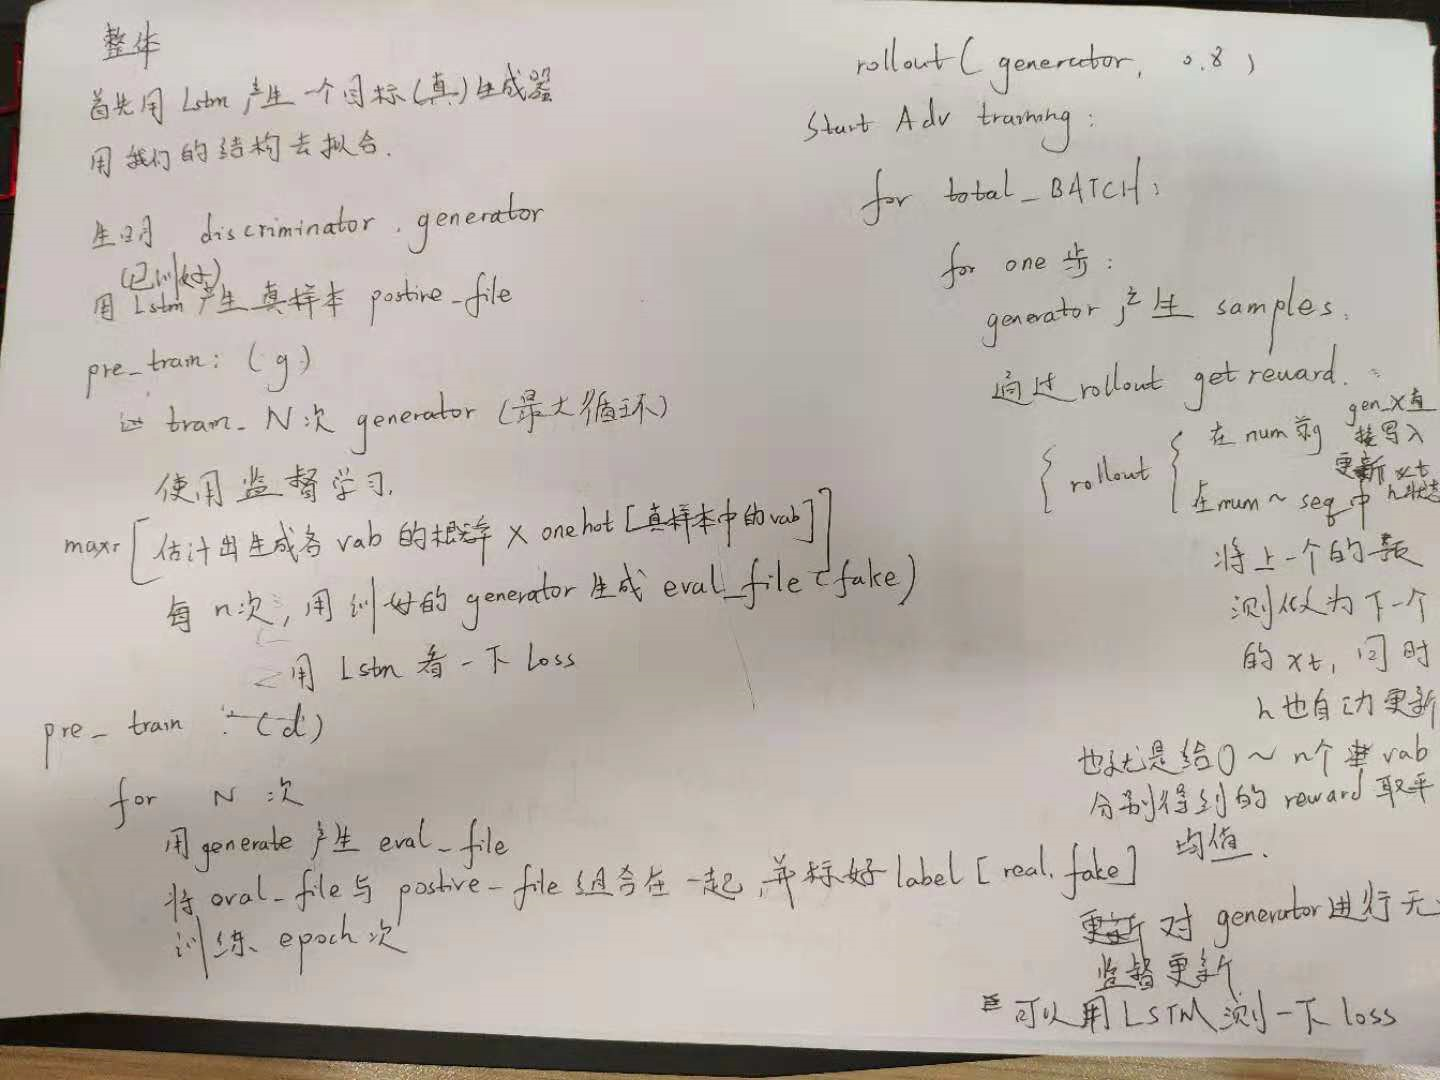 整体
首先用 Lstm 产生一个目标(真)生成器
用我们的结构去拟合.
生明 discriminator . generator
(已训好)
用 Lstm 产生真样本 postive_file
pre_train: (g)
train_ N次 generator (最大循环)
使用监督学习.
[估计出生成各 vab 的概率 × onehot [真样本中的vab]]
每 n次, 用训好的 generator 生成 eval_file (fake)
用 Lstm 看一下 Loss
pre_ train : (d)
for N 次
用 generate 产生 eval_file
将 oval_file 与 postive_file 组合在一起,并标好 label [real, fake]
训练 epoch 次
rollout( generator, 0.8 )
Start Adv training:
for total_BATCH:
for one 步:
generator 产生 samples.
通过 rollout get reward.
rollout
在 num 前 gen_x 直接写入
更新 xt
h状态
在 num ~ seq 中
将上一个的预
测做为下一个
的 xt, 同时
h也自动更新
也就是给0 ~ n个 vab
分别得到的 reward 取平
均值.
对 generator 进行无
监督更新
可以用 LSTM 测一下 loss